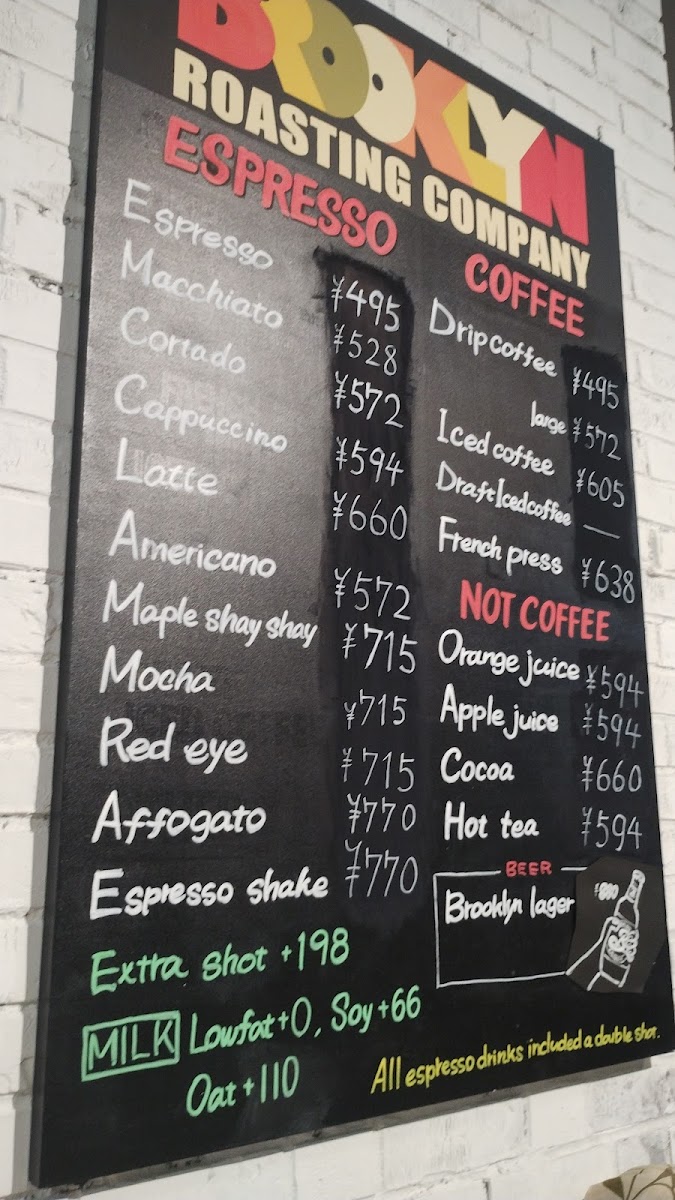 BROOKLYN
ROASTING COMPANY
ESPRESSO
Espresso ¥495
Macchiato ¥528
Cortado ¥572
Cappuccino ¥594
Latte ¥660
Americano ¥572
Maple shay shay ¥715
Mocha ¥715
Red eye ¥715
Affogato ¥770
Espresso shake ¥770
Extra shot +198
MILK Lowfat+0, Soy+66
Oat+110
COFFEE
Drip coffee ¥495
large ¥572
Iced coffee ¥605
Draft Iced coffee —
French press ¥638
NOT COFFEE
Orange juice ¥594
Apple juice ¥594
Cocoa ¥660
Hot tea ¥594
BEER
Brooklyn lager
All espresso drinks included a double shot.